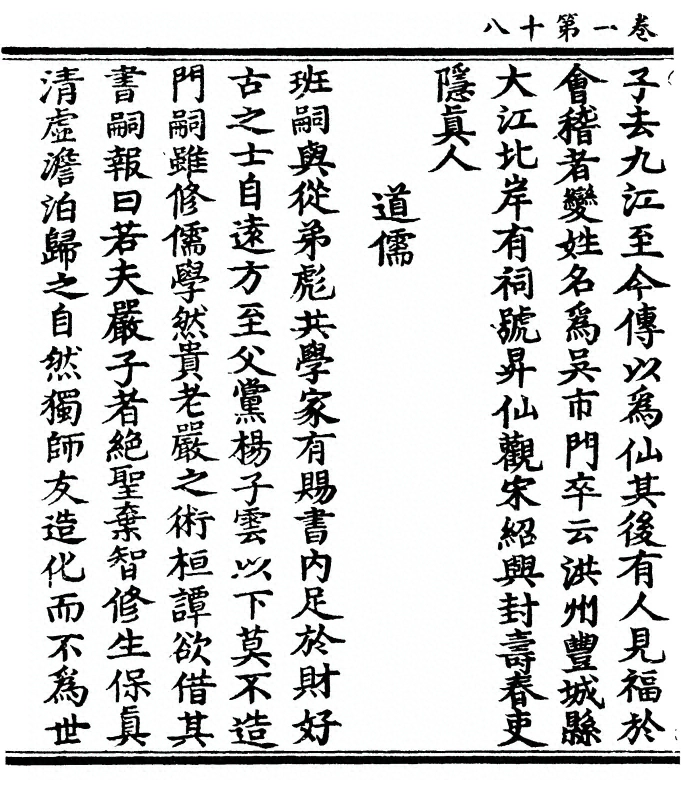 卷一第十八
子去九江至今傳以爲仙其後有人見福於
會稽者變姓名爲吳市門卒云洪州豐城縣
大江北岸有祠號昇仙觀宋紹興封壽春吏
隱眞人
道儒
班嗣與從弟彪共學家有賜書內足於財好
古之士自遠方至父黨楊子雲以下莫不造
門嗣雖修儒學然貴老嚴之術桓譚欲借其
書嗣報曰若夫嚴子者絕聖棄智修生保眞
清虛澹泊歸之自然獨師友造化而不爲世